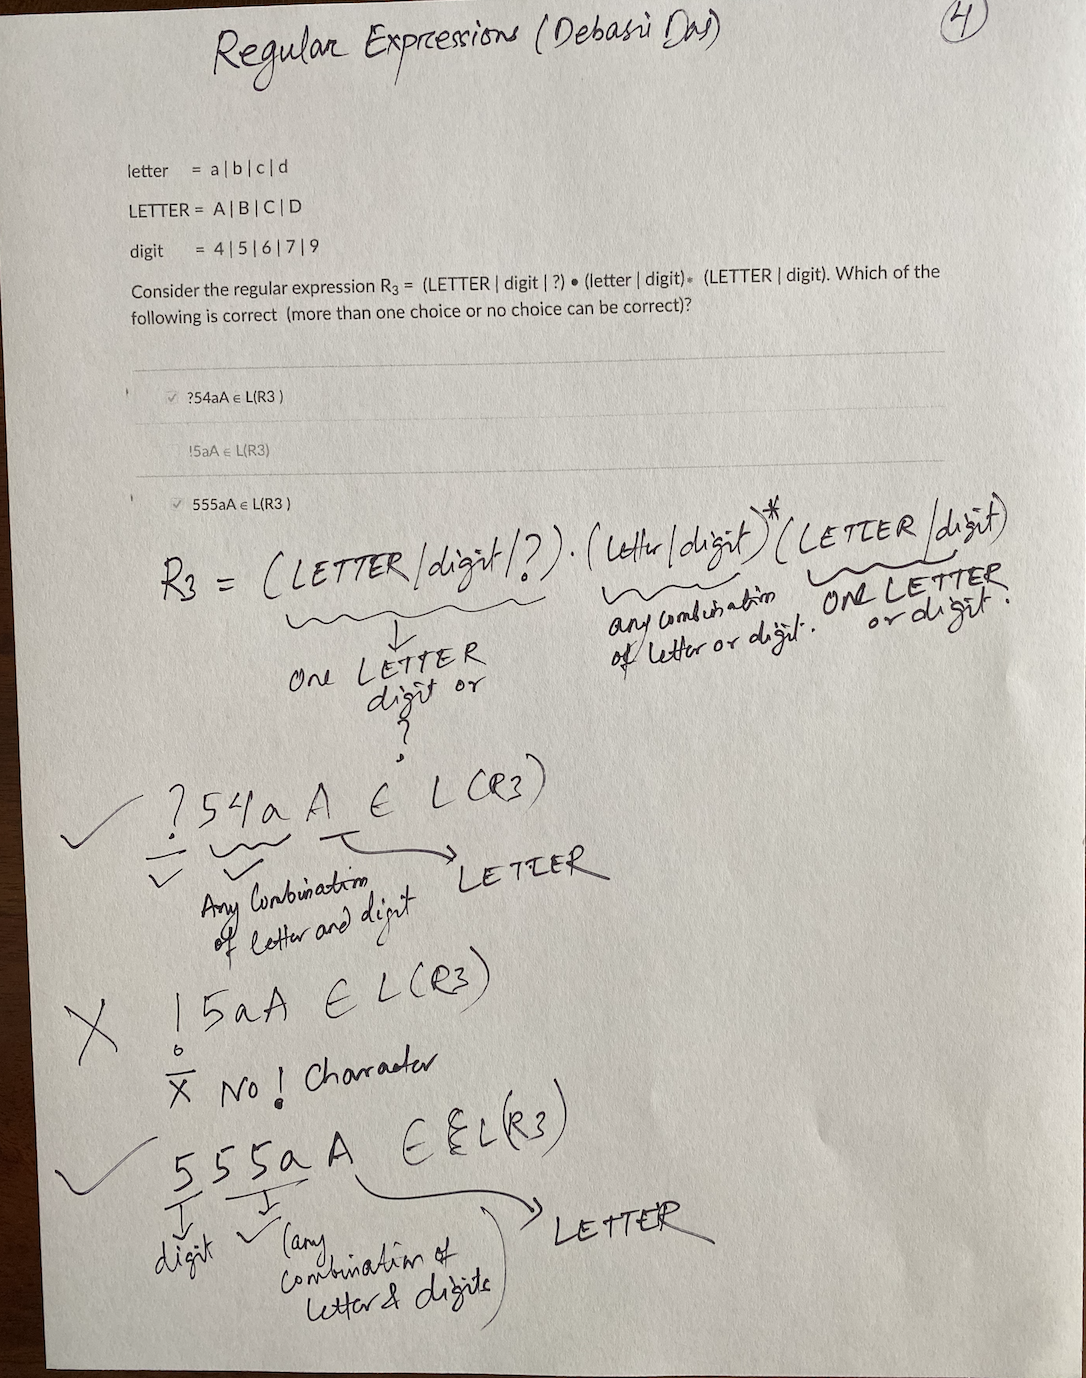 Regular Expressions (Debasri Das)
4
letter = a|b|c|d
LETTER = A|B|C|D
digit = 4|5|6|7|9
Consider the regular expression R3 = (LETTER | digit | ?) • (letter | digit)* (LETTER | digit). Which of the
following is correct (more than one choice or no choice can be correct)?
?54aA ∈ L(R3 )
!5aA ∈ L(R3)
555aA ∈ L(R3 )
R3 = (LETTER/digit/?).(letter/digit)*(LETTER/digit)
one LETTER
digit or
?
any combination
of letter or digit.
one LETTER
or digit.
?54aA ∈ L(R3)
LETTER
Any Combination
of letter and digit
X !5aA ∈ L(R3)
X No ! Character
555aA ∈ L(R3)
LETTER
digit
(any
combination of
letter & digits)